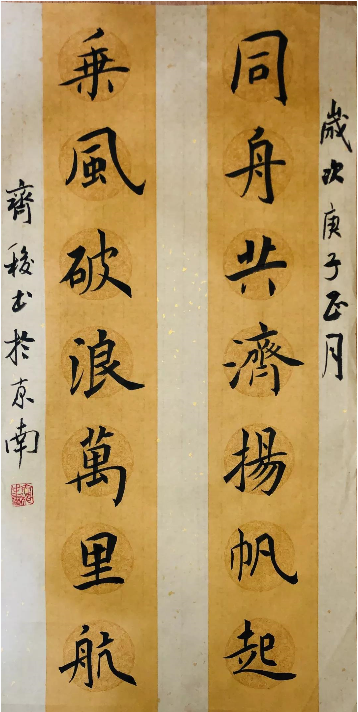 歲次庚子正月
同舟共濟揚帆起
乘風破浪萬里航
齊稜书於京南